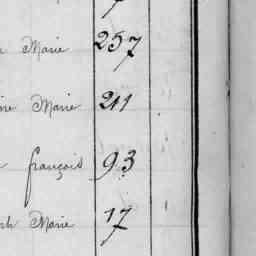 Marie 257
Marie 211
françois 93
Marie 17